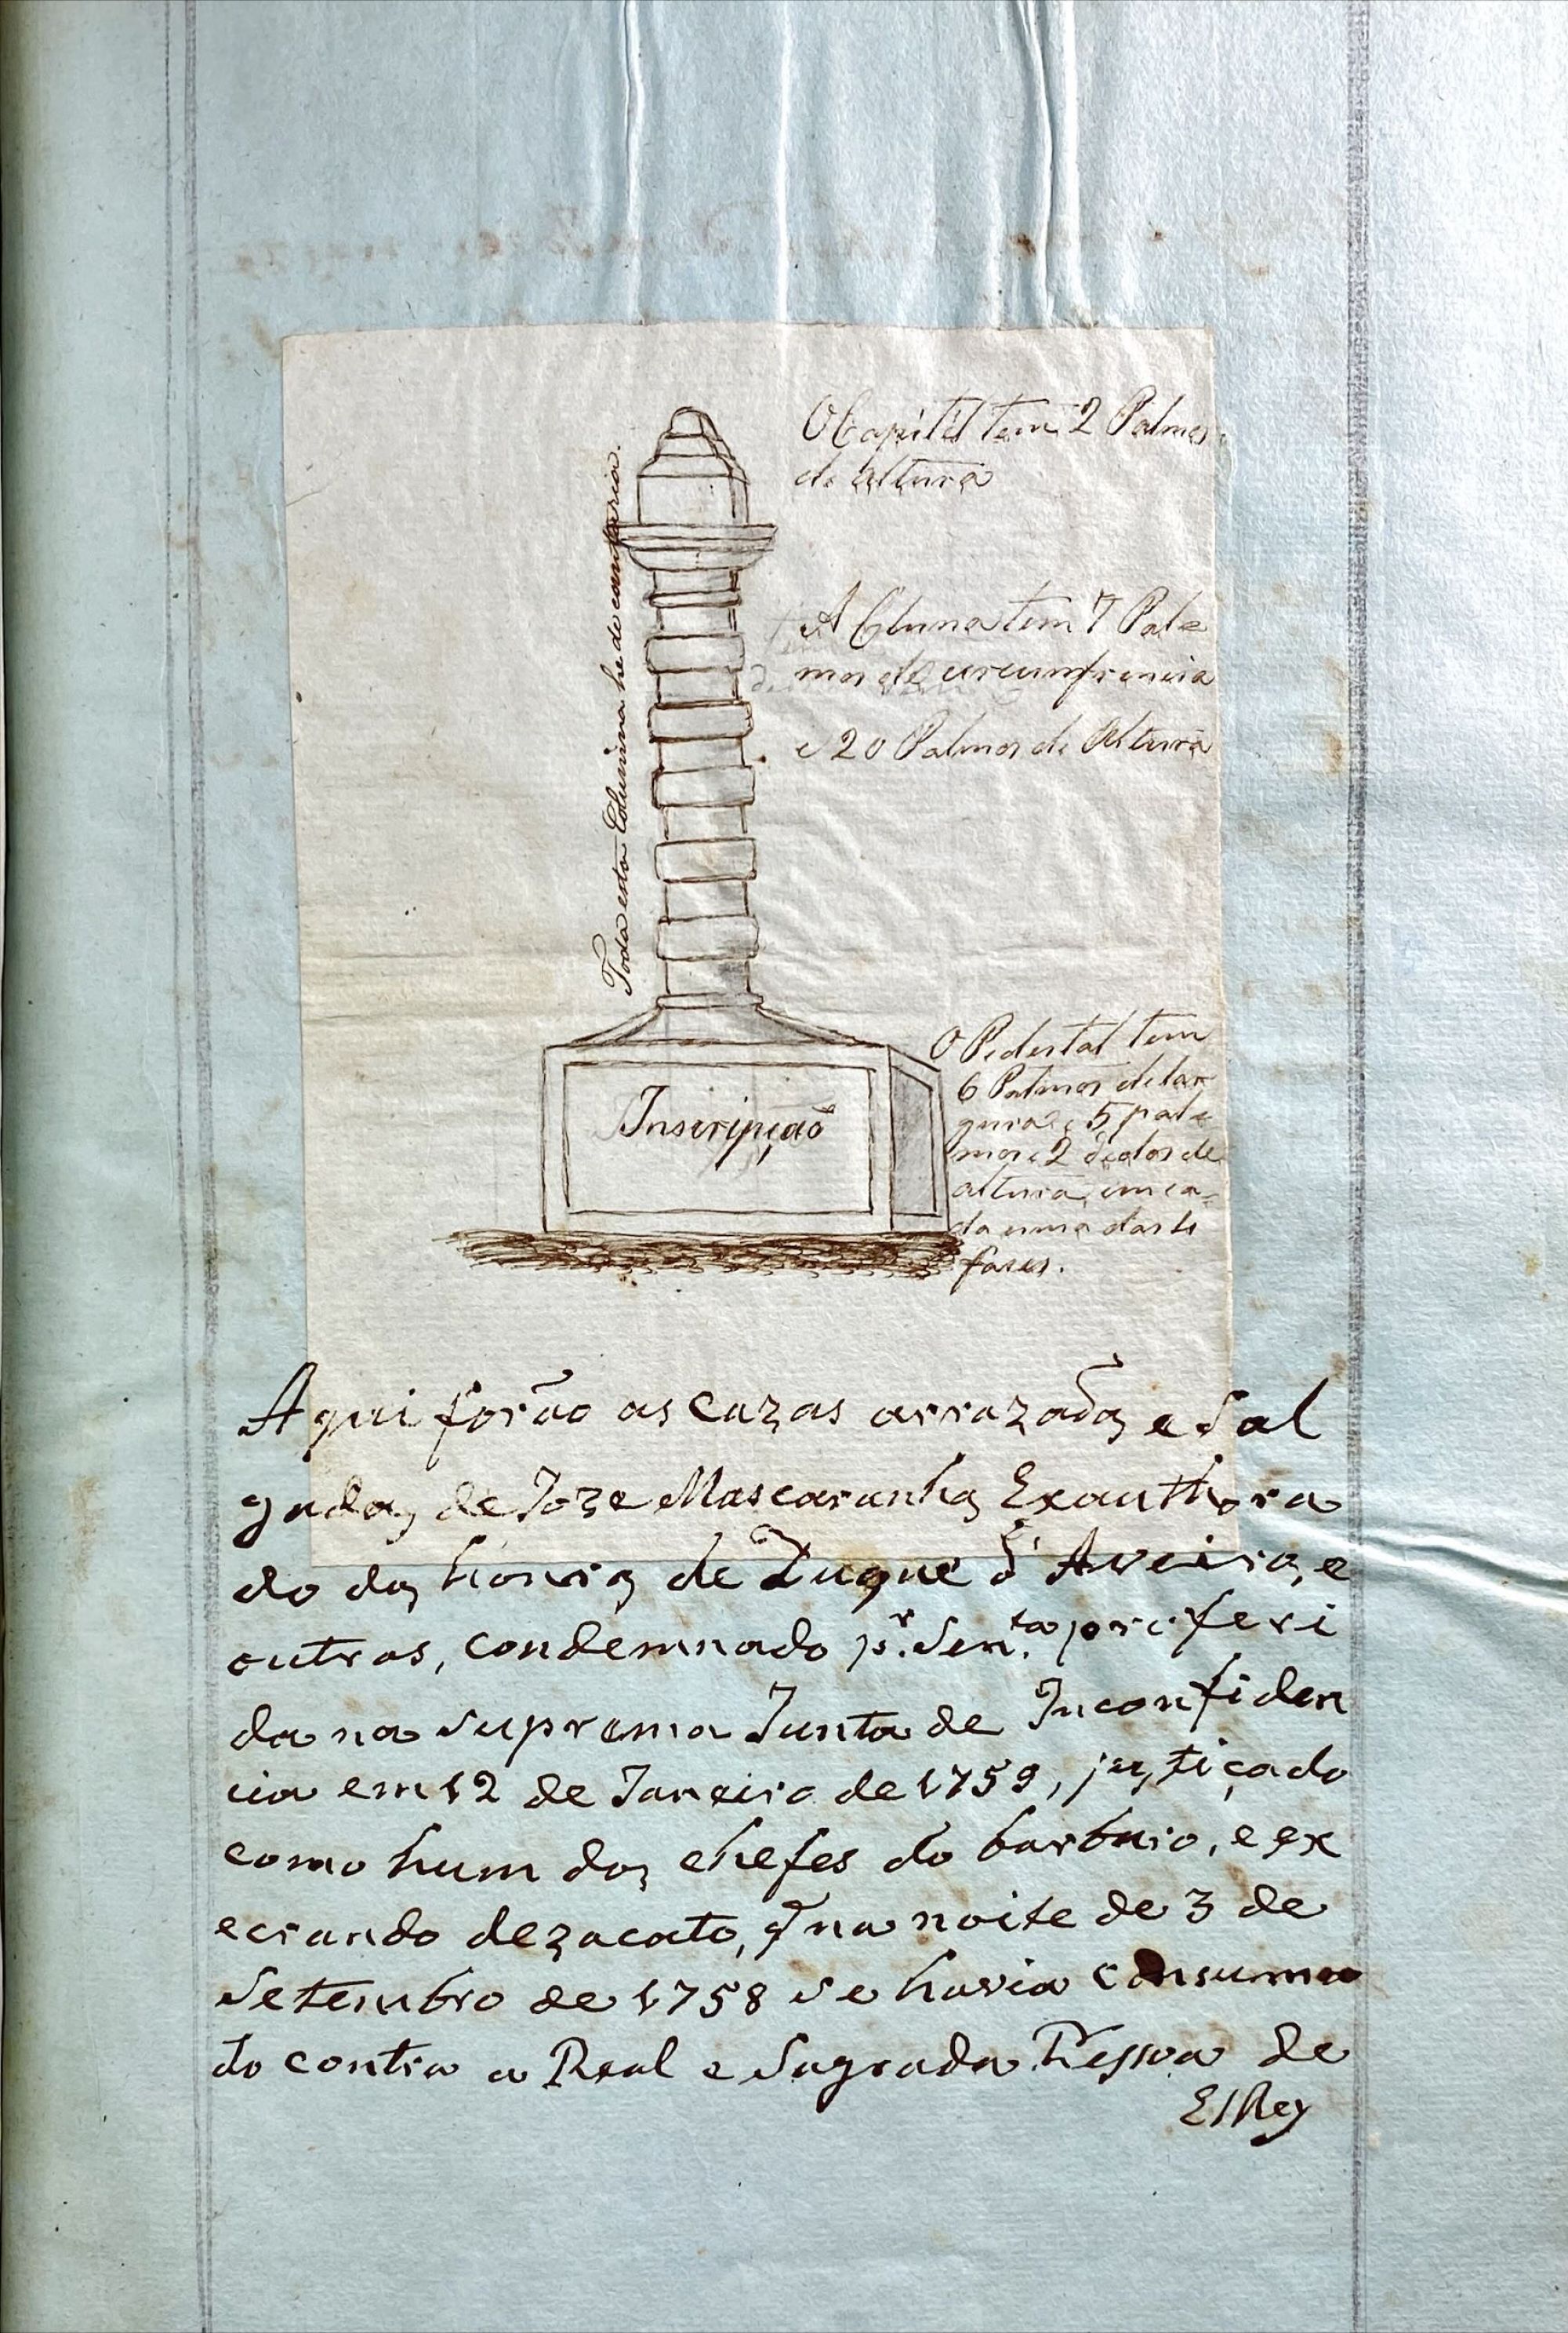 O Capitél tem 2 Palmos
de altura
Toda esta Columna he de cantaria.
A Cluna tem 7 Pal=
mos de circumfrencia
e 20 Palmos de Altura
O Pedestal tem
6 Palmos de lar
gura, e 5 pal=
mos e 2 dedos de
altura, em ca=
da uma das 4
faces.
Inscripção
Aqui forão as cazas arrazadas e Sal
gadas de Joze Mascarenhas Exauthora
do das honras de Duque d'Aveiro, e
outras, condemnado pr. Senta. proferi
da na Suprema Junta de Inconfiden
cia em 12 de Janeiro de 1759, justiçado
como hum dos chefes do barbaro, e ex
ecrando dezacato, q̃ na noite de 3 de
Setembro de 1758 se havia consuma
do contra a Real e Sagrada Pessoa de
ElRey